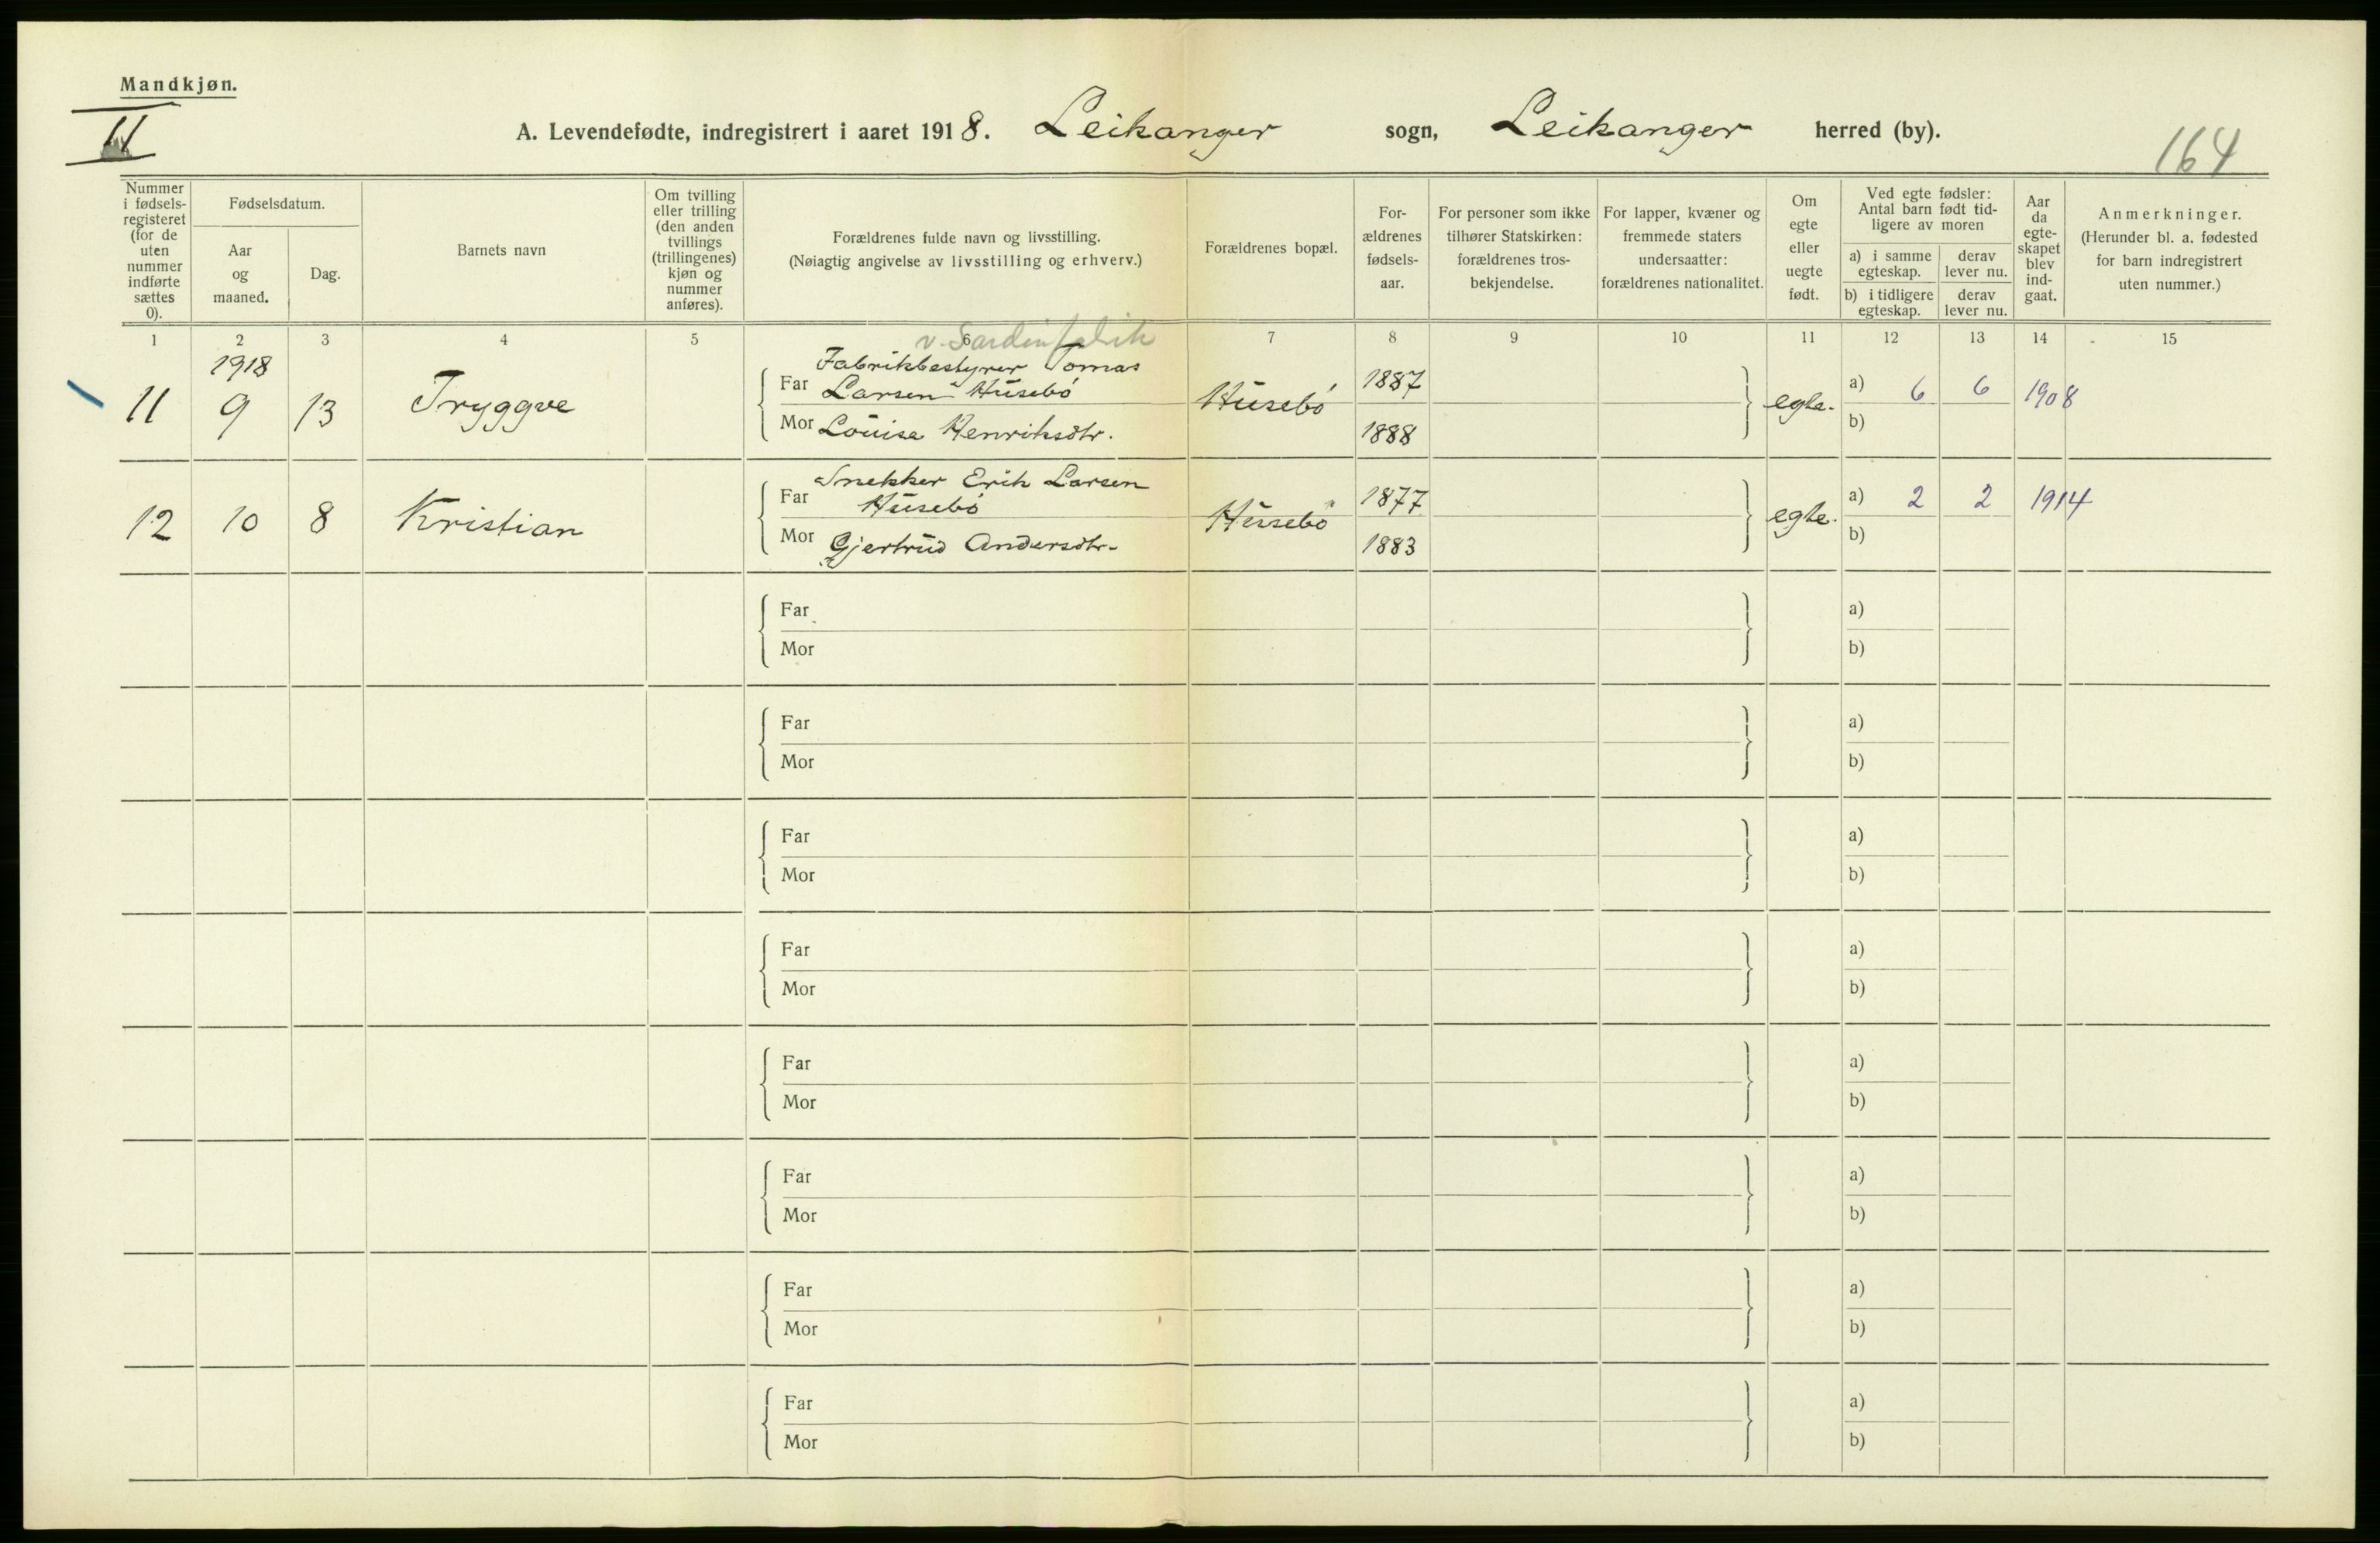 Mandkjøn.
II
A. Levendefødte, indregistrert i aaret 1918. Leikanger sogn, Leikanger herred (by).
164
Nummer i fødsels-registeret (for de uten nummer indførte sættes 0).
Fødselsdatum.
Aar og maaned.
Dag.
Barnets navn
Om tvilling eller trilling (den anden tvillings (trillingenes) kjøn og nummer anføres).
Forældrenes fulde navn og livsstilling.
(Nøiagtig angivelse av livsstilling og erhverv.)
Forældrenes bopæl.
For-ældrenes fødsels-aar.
For personer som ikke tilhører Statskirken: forældrenes tros-bekjendelse.
For lapper, kvæner og fremmede staters undersaatter: forældrenes nationalitet.
Om egte eller uegte født.
Ved egte fødsler: Antal barn født tid-ligere av moren
a) i samme egteskap.
derav lever nu.
b) i tidligere egteskap.
derav lever nu.
Aar da egte-skapet blev ind-gaat.
Anmerkninger.
(Herunder bl. a. fødested for barn indregistrert uten nummer.)
1 2 3 4 5 6 7 8 9 10 11 12 13 14 15
v. Sardinfabrik
1918
11 9 13 Tryggve
Fabrikbestyrer Tomas
Far Larsen Husebö
Mor Louisa Henriksdtr.
Husebö
1887
1888
egte.
a) 6 6 1908
b)
12 10 8 Kristian
Snekker Erik Larsen
Far Husebö
Mor Gjertrud Andersdtr.
Husebö
1877
1883
egte.
a) 2 2 1914
b)
Far a)
Mor b)
Far a)
Mor b)
Far a)
Mor b)
Far a)
Mor b)
Far a)
Mor b)
Far a)
Mor b)
Far a)
Mor b)
Far a)
Mor b)